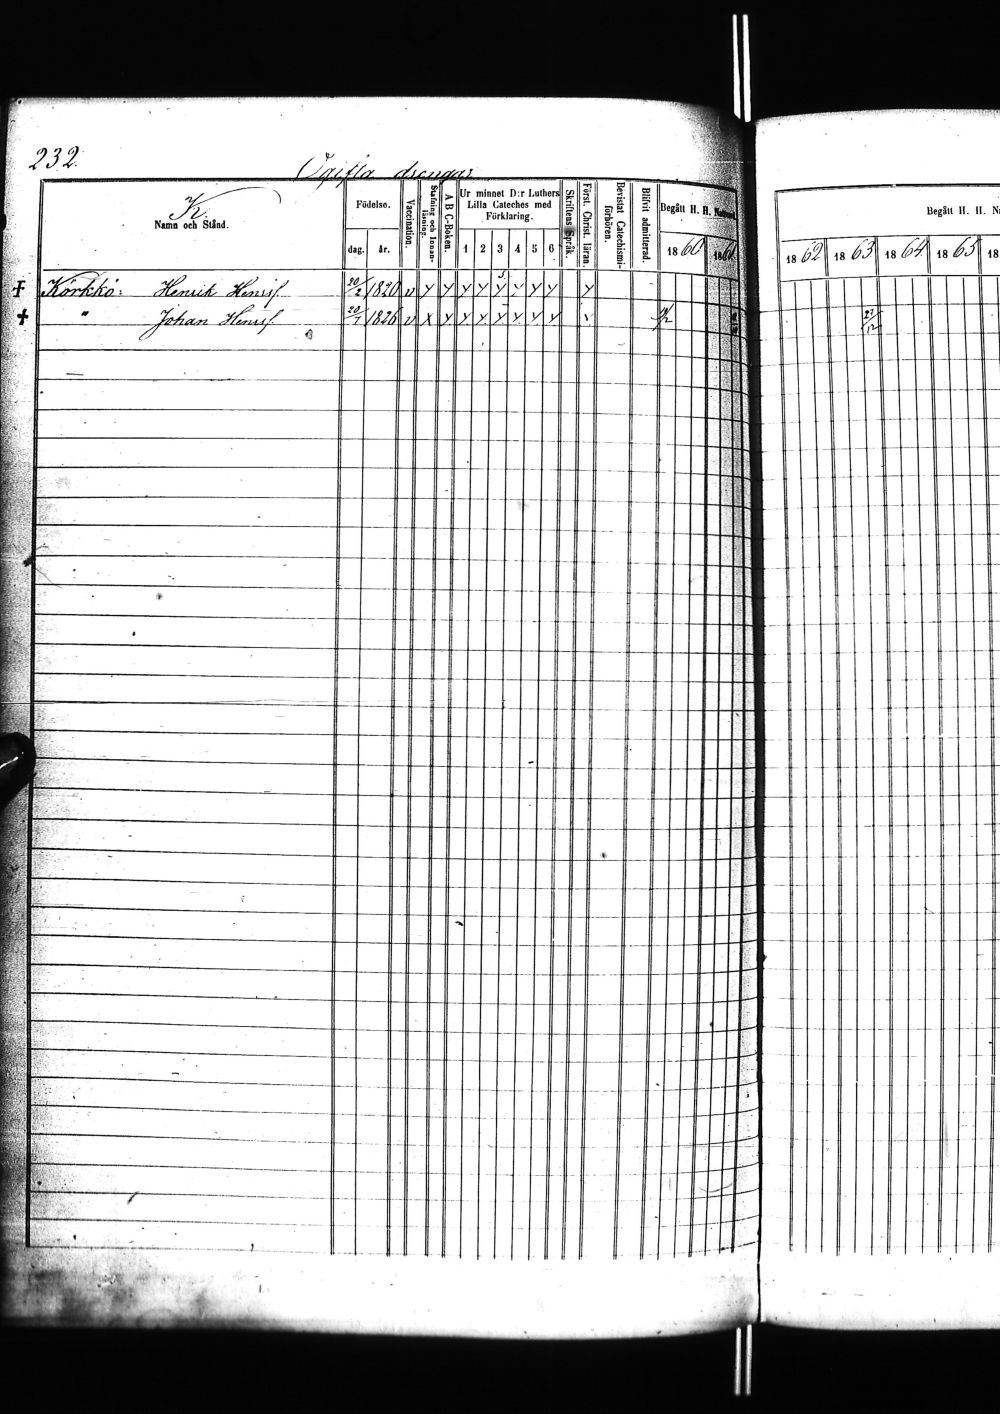 232.
Ogifta drengar
K.
Namn och Stånd.
Födelse.
dag. år.
Vaccination.
Stafning och Innan-läsning.
A B C-Boken.
Ur minnet D:r Luthers
Lilla Cateches med
Förklaring.
1 2 3 4 5 6
Skriftens Språk.
Först. Christ. läran.
Bevistat Catechismi-förhören.
Blifvit admitterad.
Begått H. H. Nattvard.
1860 1861
Begått H. H. Na
1862 1863 1864 1865 18
Körkkö: Henrik Henrisf. 20/2 1820 v y y y y y y y y y
" Johan Henrisf. 20/1 1826 v x y y y y y y y v 27/12